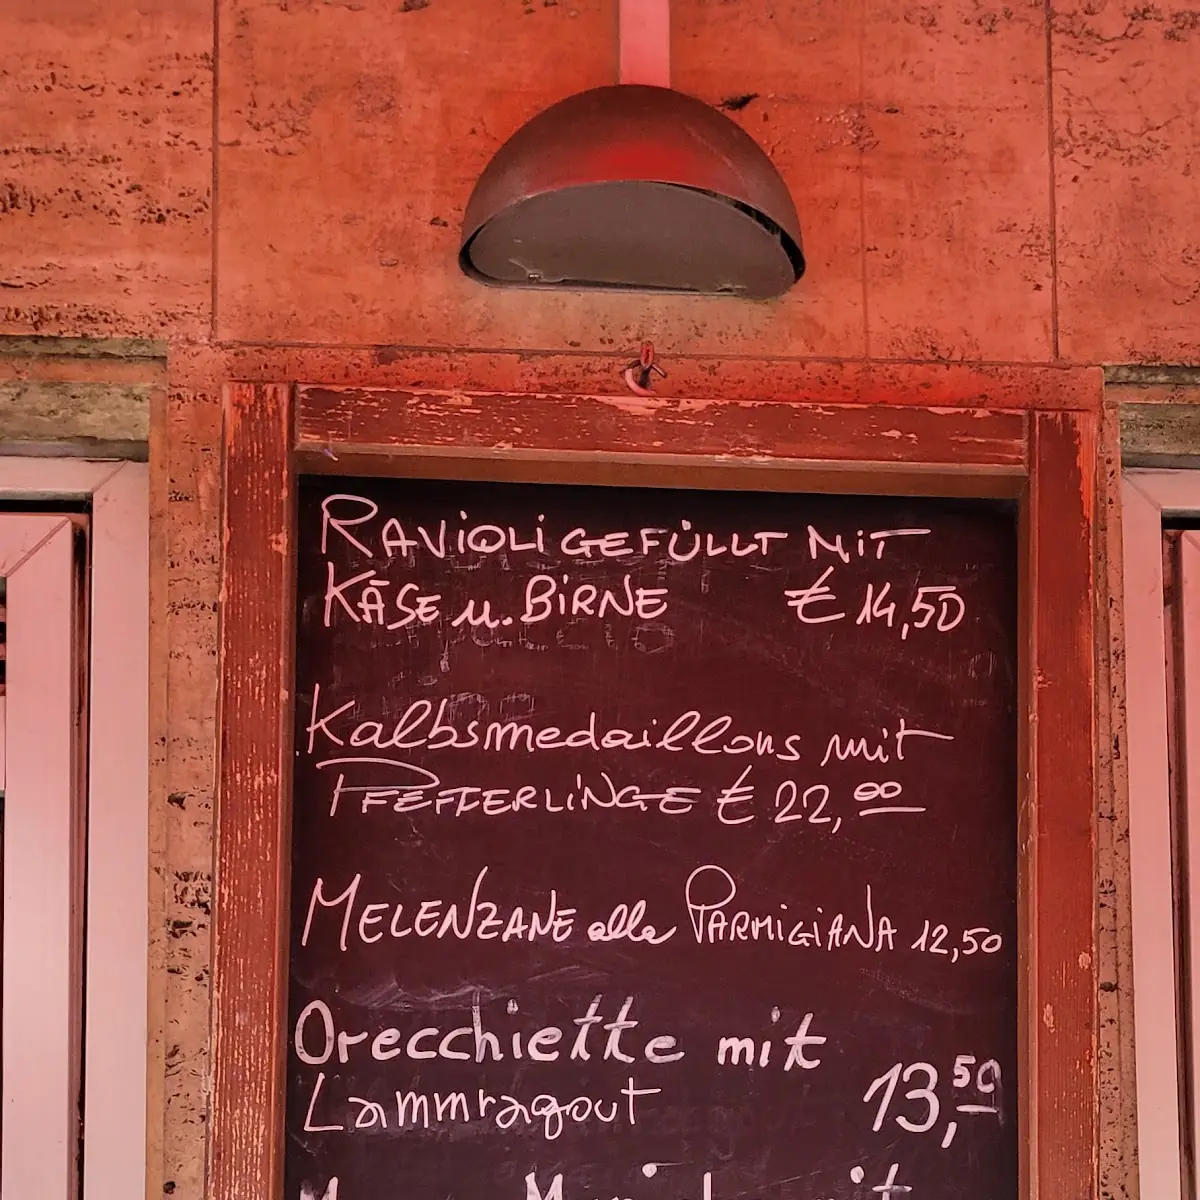 RAVIOLI GEFÜLLT MIT
KÄSE u. BIRNE € 14,50
Kalbsmedaillons mit
PFEFFERLINGE € 22,00
MELENZANE alla PARMIGIANA 12,50
Orecchiette mit
Lammragout 13,50
mit